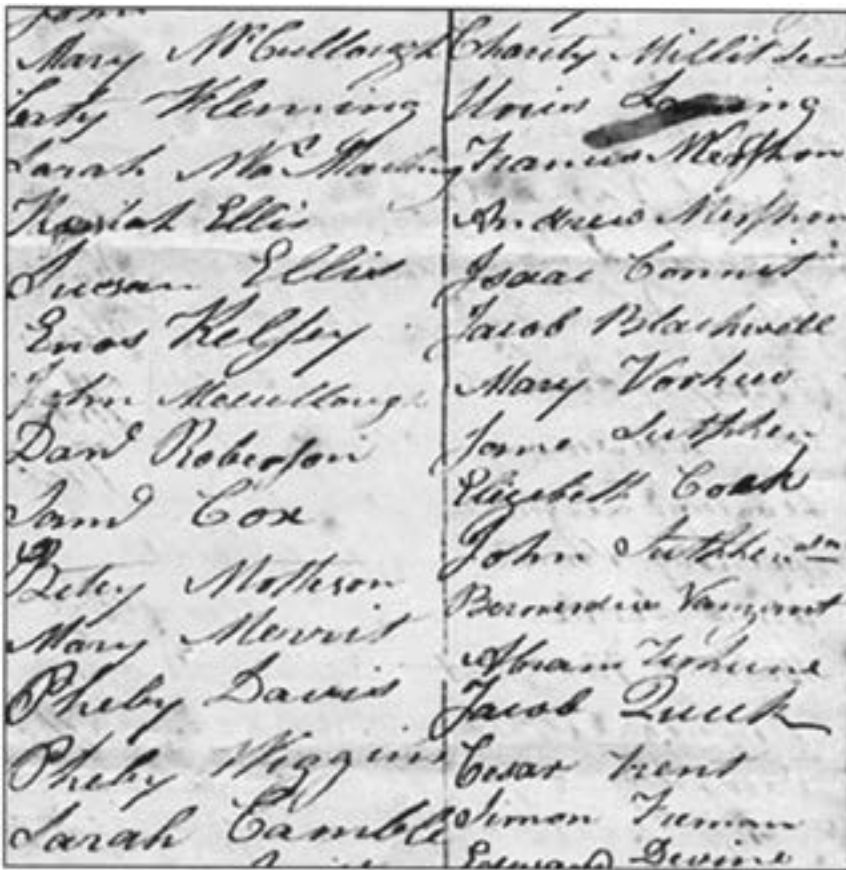 John
Mary McCullough
Caty Fleming
Sarah
Keziah Ellis
Susan Ellis
Enos Kelsey
John Mccullough
Danl Roberson
Saml Cox
Betey
Mary Morris
Pheby Davis
Pheby Wiggins
Sarah Camble
Charity Millit Senr
Francis Mershon
Andrew Mershon
Isaac
Jacob Blackwell
Mary Vorhies
Jane Sutphen
Elizabeth Cook
John Sutphen
Vanzant
Abram Terhune
Jacob Quick
Cesar trent
Simon
Devine